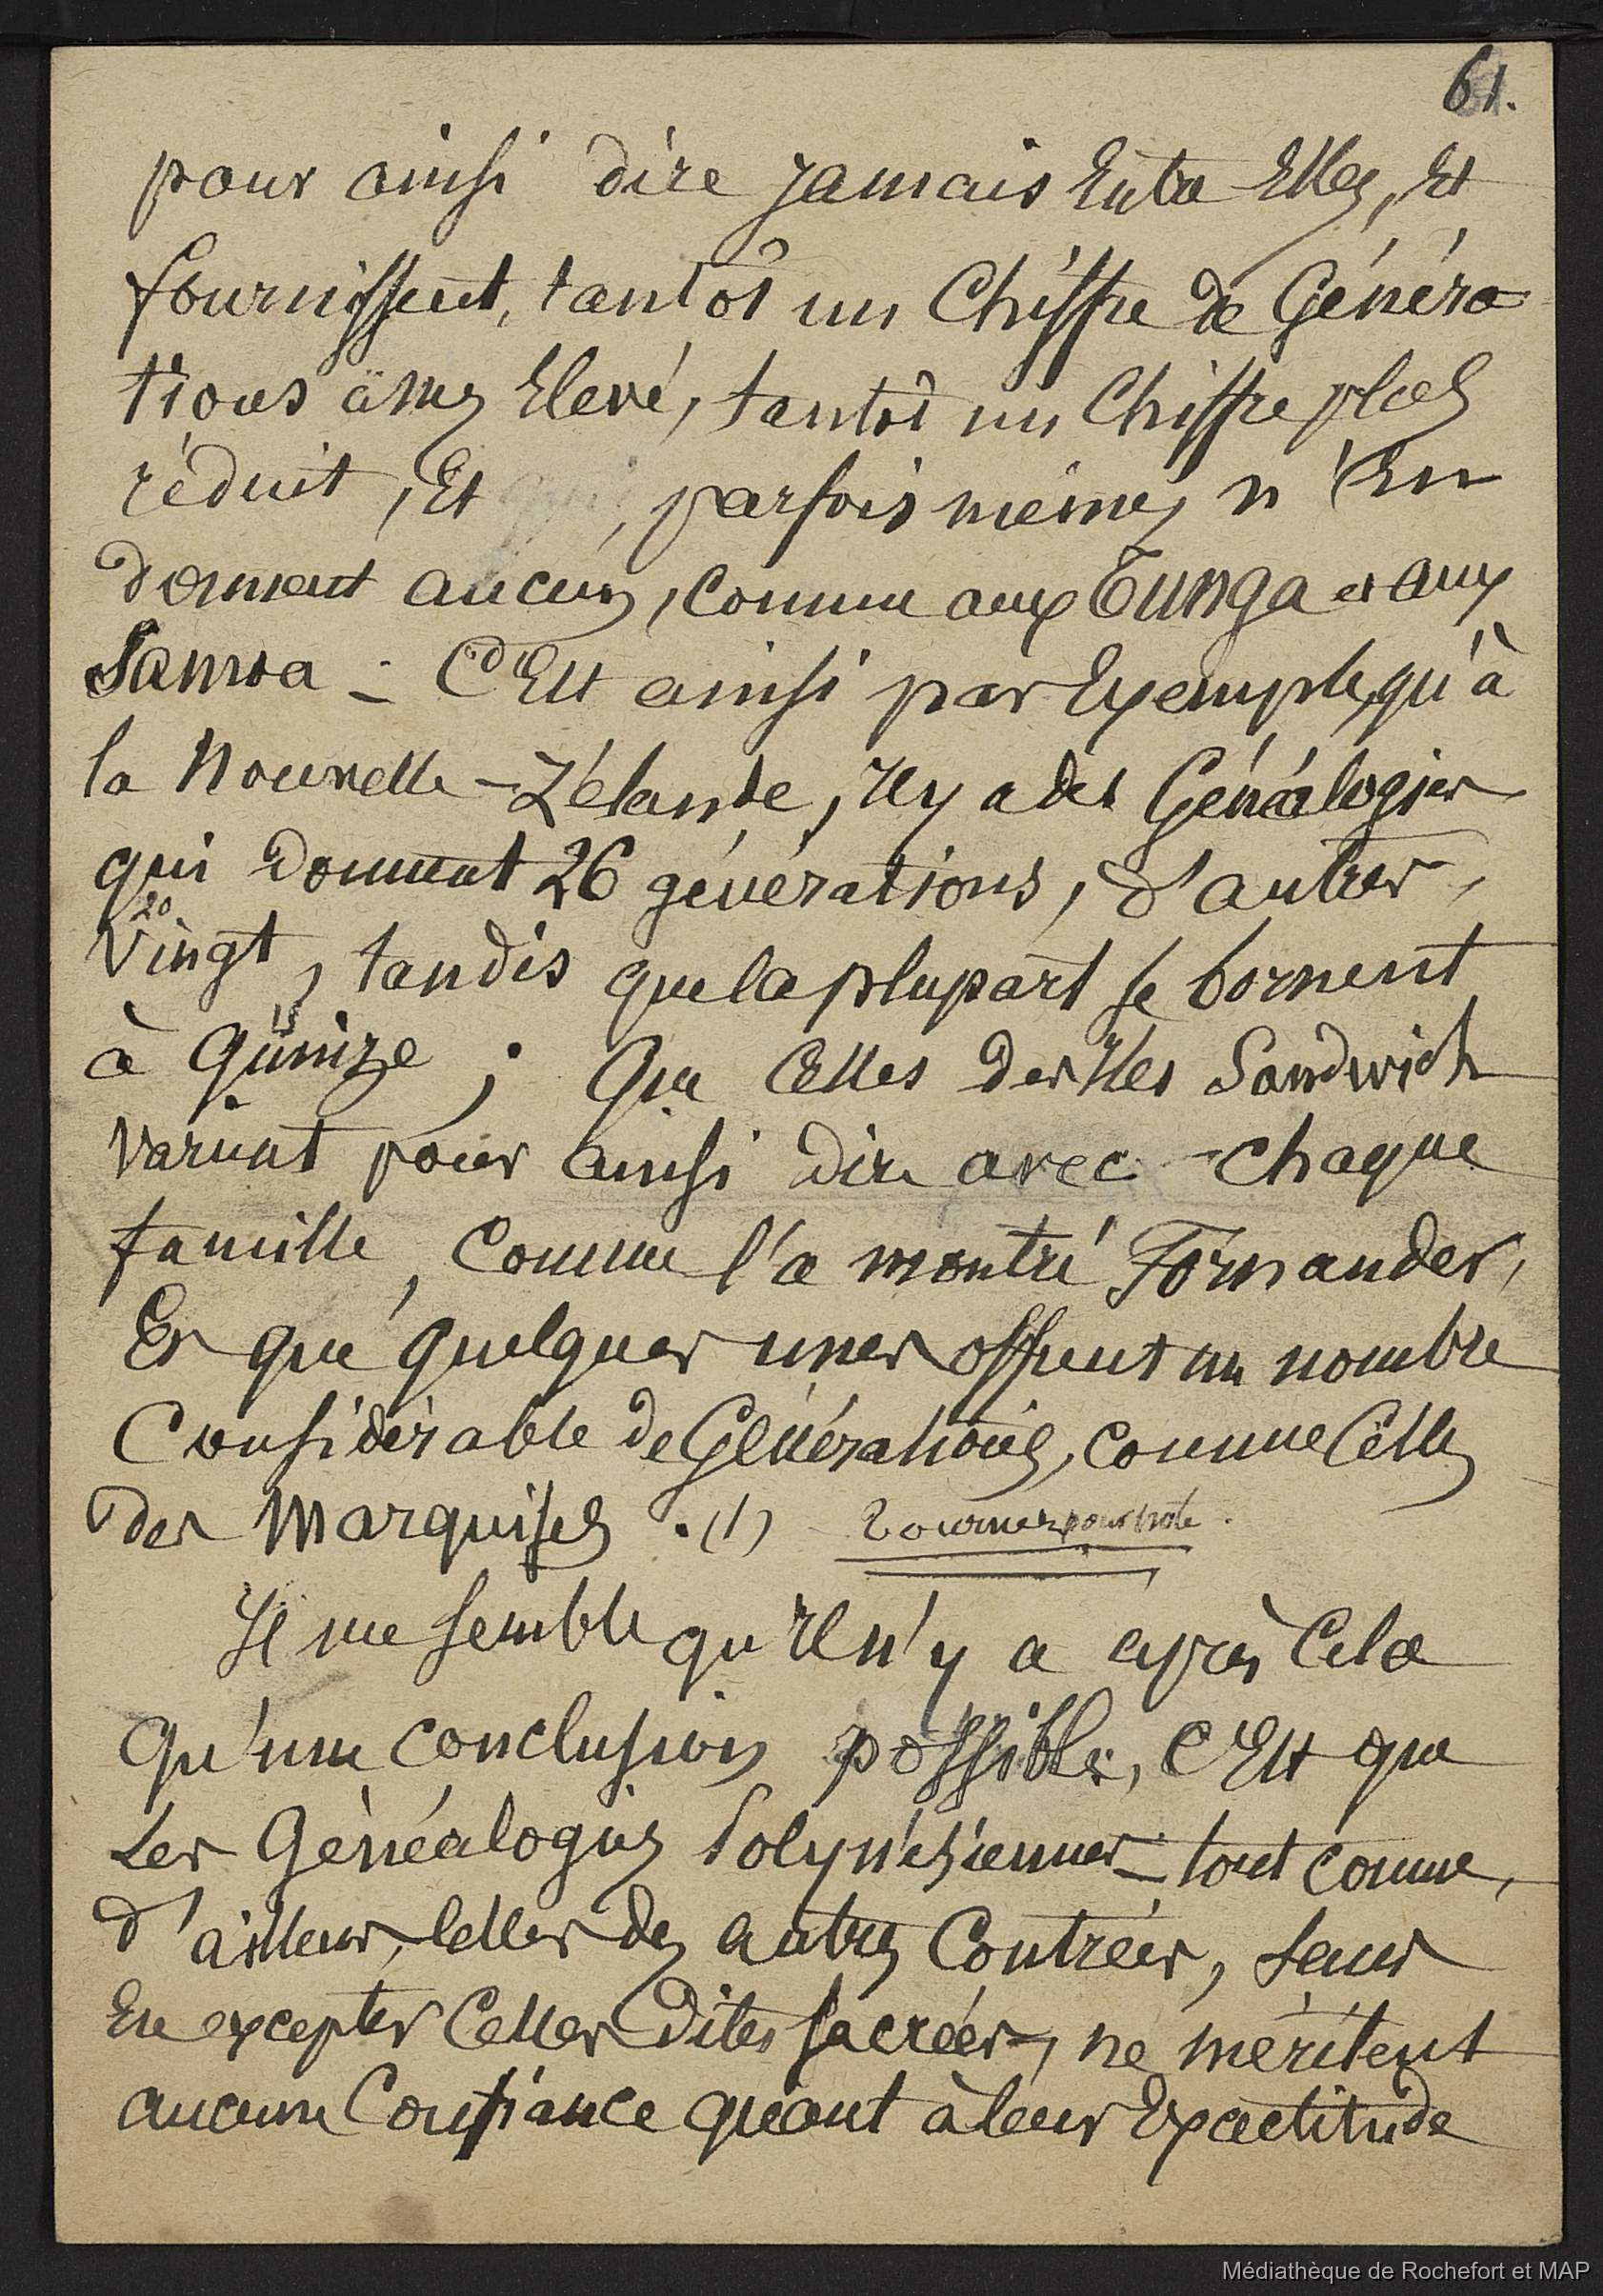 61.
pour ainsi dire jamais Entre Elles, Et
fournissent, tantôt un Chiffre de Généra
tions assez Elevé, tantôt un Chiffre plus
réduit, Et , parfois même, n'En
donnent aucun, comme aux Tunga et aux
Samoa - C'Est ainsi par Exemple, qu'à
la Nouvelle-Zélande, Il y a des Généalogies
qui donnent 26 générations, d'autres,
20
Vingt, tandis que la plupart se bornent
15
à Quinze ; Que Celles des Iles Sandwich
varient pour ainsi dire avec chaque
famille, Comme l'a montré Fornander,
Et que quelques unes offrent un nombre
Considérable de Générations, comme Celles
des Marquises . (1) Tourner pour note.
Il me semble qu'Il n'y a après Cela
Qu'une conclusion possible, C'Est que
Les Généalogies Polynésiennes - tout comme,
d'ailleurs, Celles des autres Contrées, sans
En excepter Celles dites sacrées -, ne méritent
aucune Confiance quant à leur Exactitude
Médiathèque de Rochefort et MAP